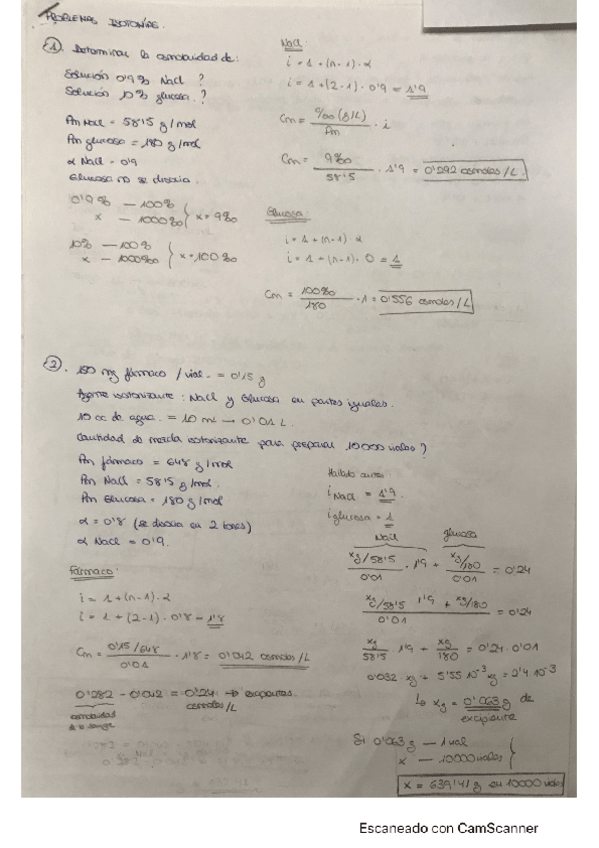 PROBLEMAS ISOTONÍA.
① Determinar la osmolaridad de:
Solución 0'9% NaCl ?
Solución 10% glucosa ?
Pm NaCl = 58'5 g/mol
Pm glucosa = 180 g/mol
α NaCl = 0'9
Glucosa no se disocia.
0'9% — 100%
x — 1000‰ } x = 9‰
10% — 100%
x — 1000‰ } x = 100‰
NaCl
i = 1 + (n-1) · α
i = 1 + (2-1) · 0'9 = 1'9
Cm = ‰ (g/L) / Pm · i
Cm = 9‰ / 58'5 · 1'9 = 0'292 osmoles/L.
Glucosa
i = 1 + (n-1) · α
i = 1 + (n-1) · 0 = 1
Cm = 100‰ / 180 · 1 = 0'556 osmoles/L
② 150 mg fármaco / vial. = 0'15 g
Agente isotonizante: NaCl y Glucosa en partes iguales.
10 cc de agua. = 10 mL → 0'01 L.
Cantidad de mezcla isotonizante para preparar 10000 viales?
Pm fármaco = 648 g/mol
Pm NaCl = 58'5 g/mol.
Pm Glucosa = 180 g/mol
α = 0'8 (se disocia en 2 iones)
α NaCl = 0'9.
Fármaco:
i = 1 + (n-1) · α
i = 1 + (2-1) · 0'8 = 1'8
Cm = 0'15/648 / 0'01 · 1'8 = 0'042 osmoles/L
0'282 - 0'042 = 0'24 → excipientes.
osmoles/L
osmolaridad
Hallado antes
i NaCl = 1'9.
i glucosa = 1
NaCl glucosa
xg/58'5 / 0'01 · 1'9 + xg/180 / 0'01 = 0'24
xg/58'5 · 1'9 + xg/180 / 0'01 = 0'24
xg / 58'5 · 1'9 + xg / 180 = 0'24 · 0'01
0'032 · xg + 5'55·10⁻³ xg = 2'4·10⁻³
↳ xg = 0'063 g de
excipiente
Si 0'063 g — 1 vial
x — 10000 viales }
x = 639'41 g en 10000 viales
Escaneado con CamScanner